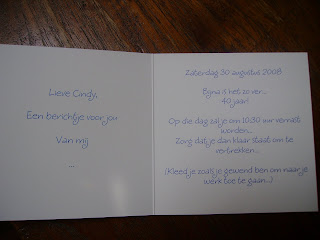 Lieve Cindy,
Een berichtje voor jou
Van mij
...
Zaterdag 30 augustus 2008
Bijna is het zo ver...
40 jaar!
Op die dag zal je om 10:30 uur verrast
worden...
Zorg dat je dan klaar staat om te
vertrekken...
(Kleed je zoals je gewend bent om naar je
werk toe te gaan...)